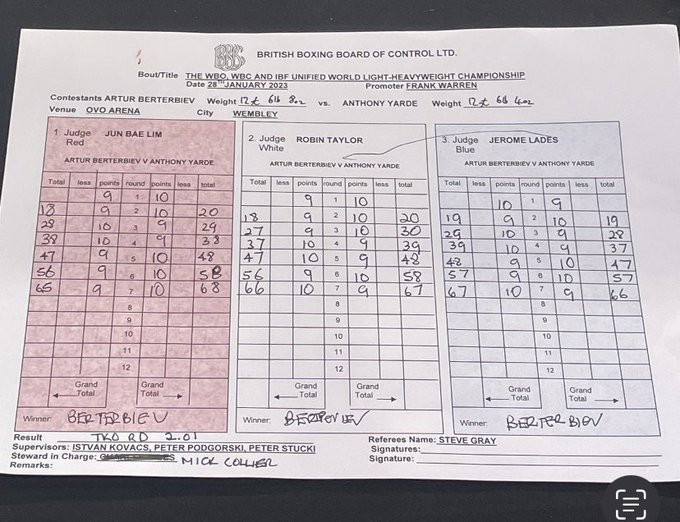 BRITISH BOXING BOARD OF CONTROL LTD.
Bout/Title THE WBO, WBC AND IBF UNIFIED WORLD LIGHT-HEAVYWEIGHT CHAMPIONSHIP
Date 28TH JANUARY 2023 Promoter FRANK WARREN
Contestants ARTUR BERTERBIEV Weight 12st 6lb 8oz vs. ANTHONY YARDE Weight 12st 6lb 4oz
Venue OVO ARENA City WEMBLEY
1 Judge JUN BAE LIM
Red
ARTUR BERTERBIEV V ANTHONY YARDE
Total less points round points less total
9 1 10
18 9 2 10 20
28 10 3 9 29
38 10 4 9 38
47 9 5 10 48
56 9 6 10 58
65 9 7 10 68
8
9
10
11
12
Grand Total Grand Total
Winner: BERTERBIEV
2. Judge ROBIN TAYLOR
White
ARTUR BERTERBIEV V ANTHONY YARDE
Total less points round points less total
9 1 10
18 9 2 10 20
27 9 3 10 30
37 10 4 9 39
47 10 5 9 48
56 9 6 10 58
66 10 7 9 67
8
9
10
11
12
Grand Total Grand Total
Winner:
3. Judge JEROME LADES
Blue
ARTUR BERTERBIEV V ANTHONY YARDE
Total less points round points less total
10 1 9
19 9 2 10 19
29 10 3 9 28
39 10 4 9 37
48 9 5 10 47
57 9 6 10 57
67 10 7 9 66
8
9
10
11
12
Grand Total Grand Total
Winner: BERTERBIEV
Result TKO RD 2.01
Supervisors: ISTVAN KOVACS, PETER PODGORSKI, PETER STUCKI
Steward in Charge: MICK COLLIER
Remarks:
Referees Name: STEVE GRAY
Signatures:
Signature: